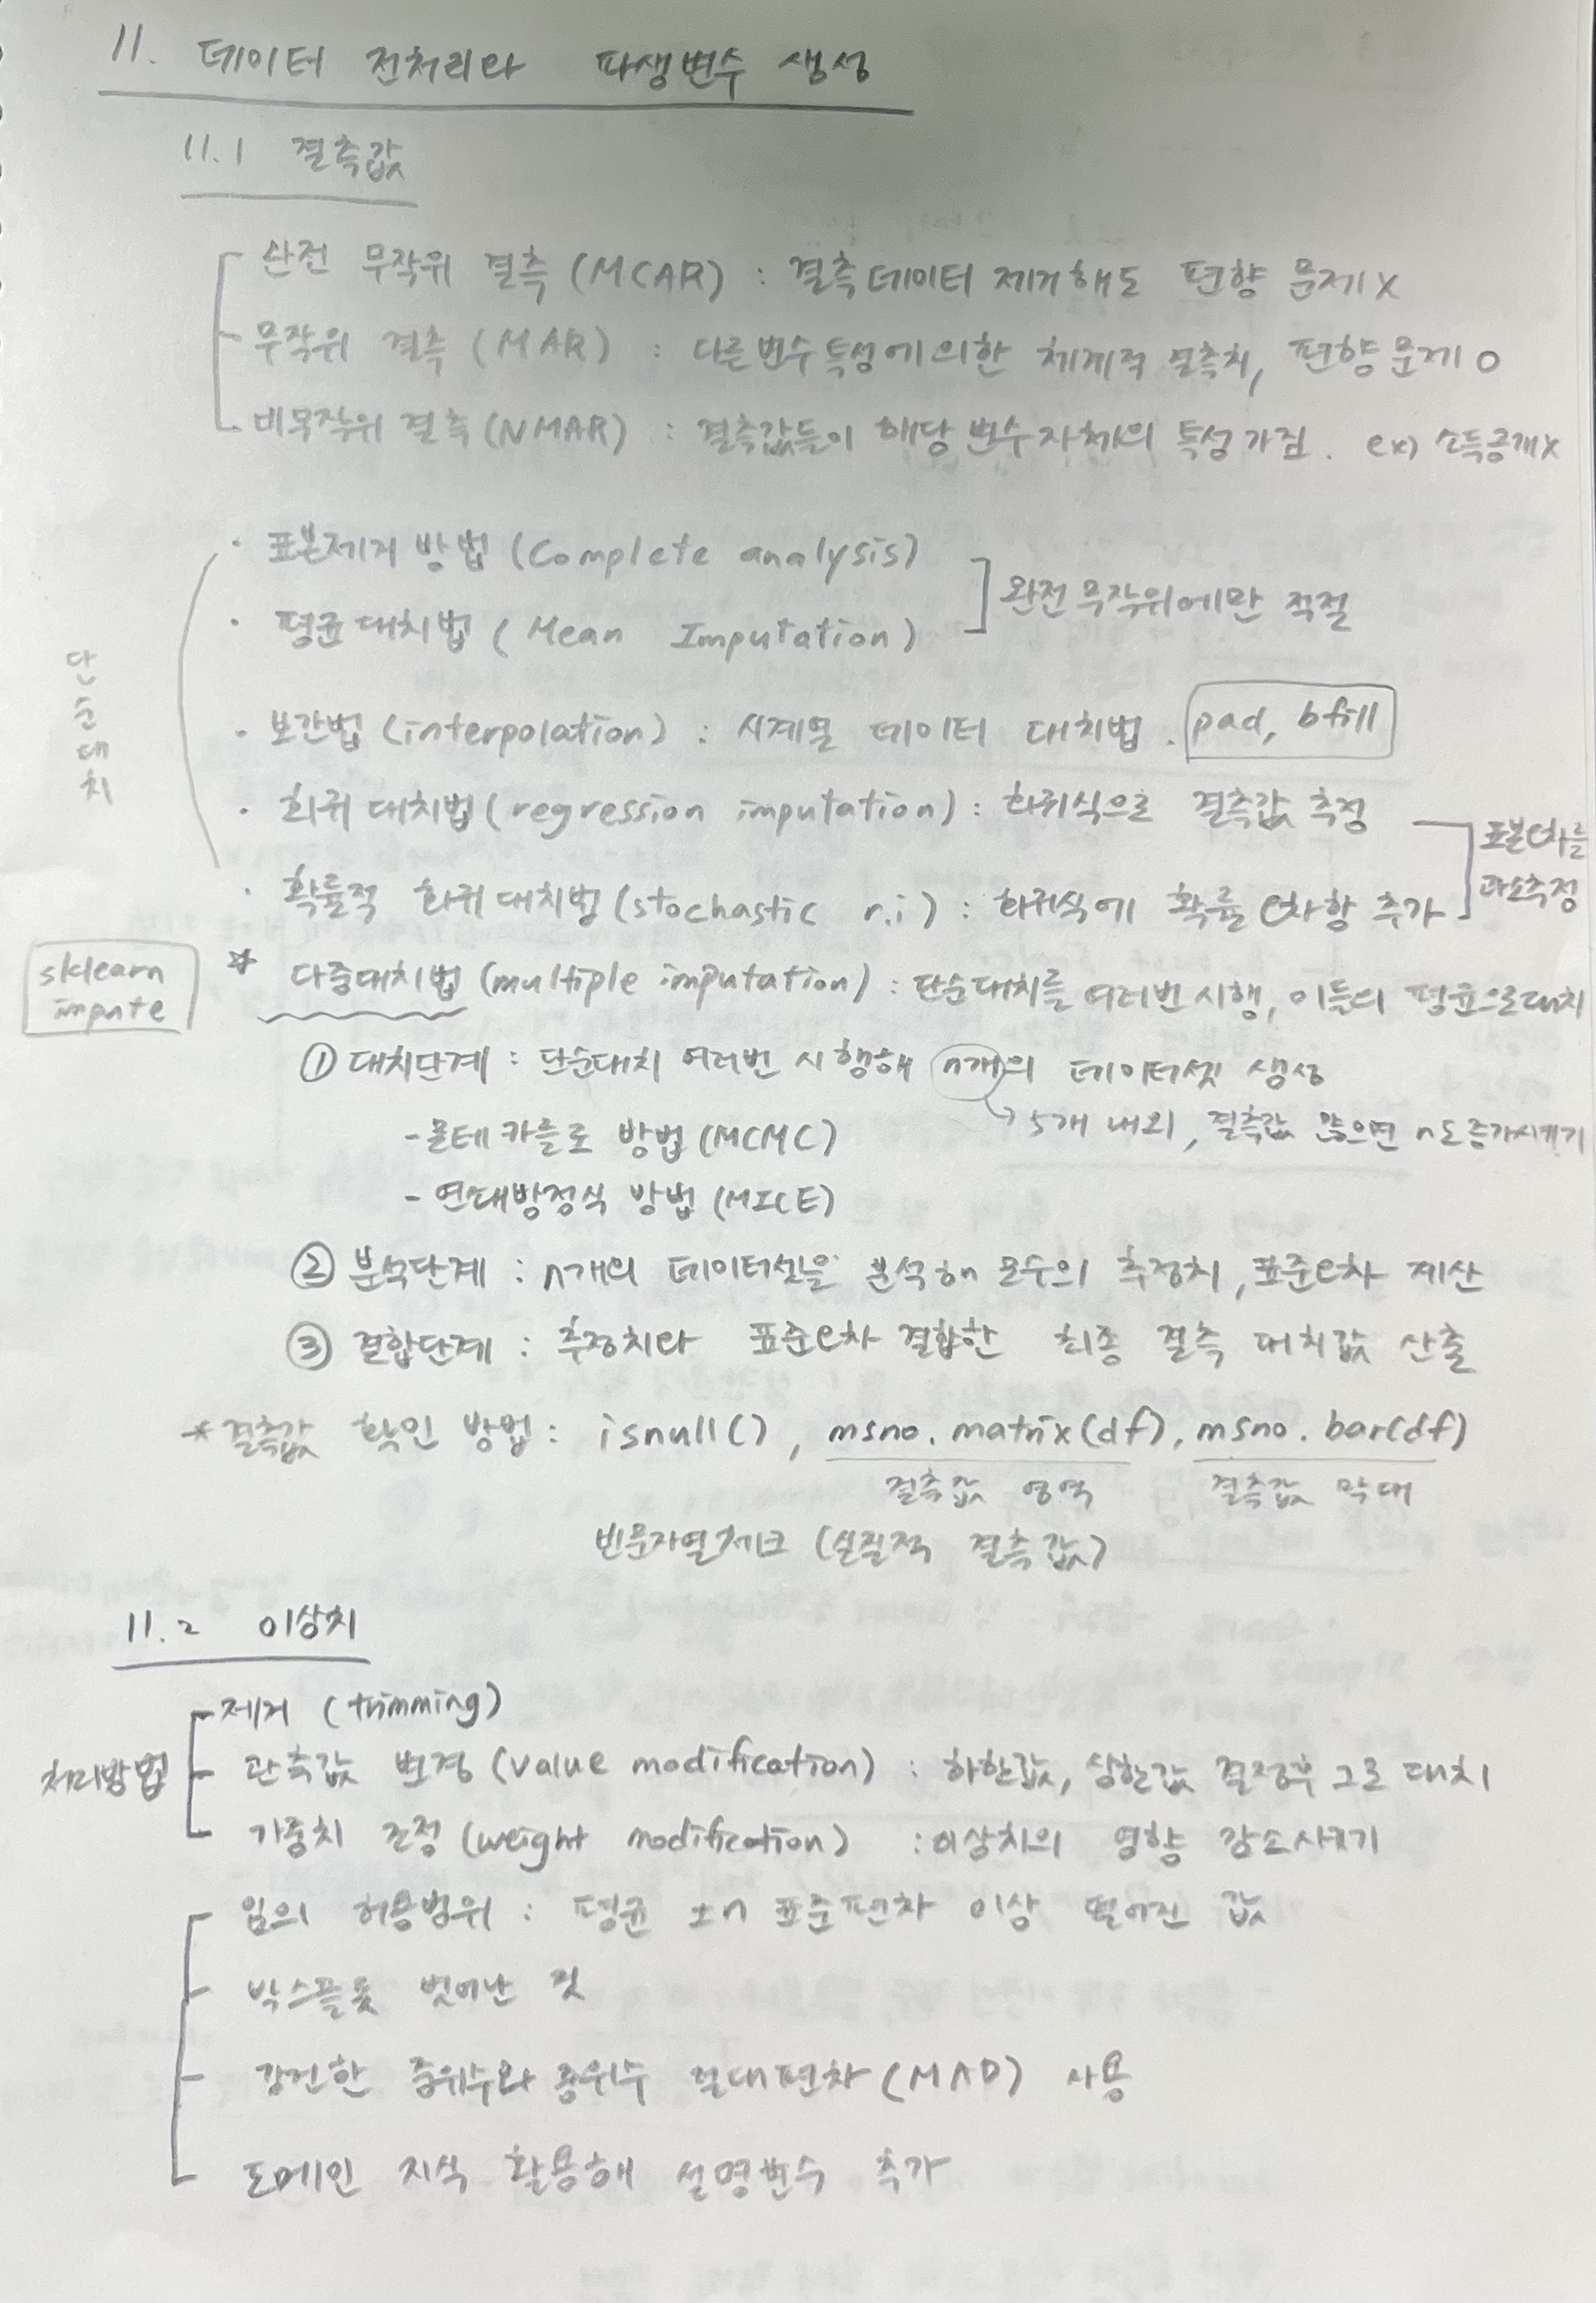 11. 데이터 전처리와 파생변수 생성
11.1 결측값
완전 무작위 결측 (MCAR) : 결측데이터 제거해도 편향 문제 X
무작위 결측 (MAR) : 다른변수 특성에 의한 체계적 결측치, 편향문제 O
비무작위 결측 (NMAR) : 결측값들이 해당 변수자체의 특성 가짐. ex) 소득공개X
단순대치
· 표본제거 방법 (Complete analysis)
· 평균 대치법 (Mean Imputation)
완전무작위에만 적절
· 보간법 (interpolation) : 시계열 데이터 대치법. pad, bfill
· 회귀 대치법 (regression imputation) : 회귀식으로 결측값 추정
· 확률적 회귀 대치법 (stochastic r.i) : 회귀식에 확률 e차항 추가
표본e차를
과소추정
sklearn
impute
* 다중대치법 (multiple imputation) : 단순대치를 여러번 시행, 이들의 평균으로대치
① 대치단계 : 단순대치 여러번 시행해 n개의 데이터셋 생성
→ 5개 내외, 결측값 많으면 n도 증가시키기
- 몬테 카를로 방법 (MCMC)
- 연쇄방정식 방법 (MICE)
② 분석단계 : n개의 데이터셋을 분석해 모수의 추정치, 표준e차 계산
③ 결합단계 : 추정치와 표준e차 결합한 최종 결측 대치값 산출
* 결측값 확인 방법 : isnull(), msno.matrix(df), msno.bar(df)
결측값 영역 결측값 막대
빈문자열체크 (실질적 결측값)
11.2 이상치
처리방법
제거 (trimming)
관측값 변경 (value modification) : 하한값, 상한값 결정후 그로 대치
가중치 조정 (weight modification) : 이상치의 영향 감소시키기
임의 허용범위 : 평균 ±n 표준편차 이상 떨어진 값
박스플롯 벗어난 것
강건한 중위수와 중위수 절대편차 (MAD) 사용
도메인 지식 활용해 설명변수 추가